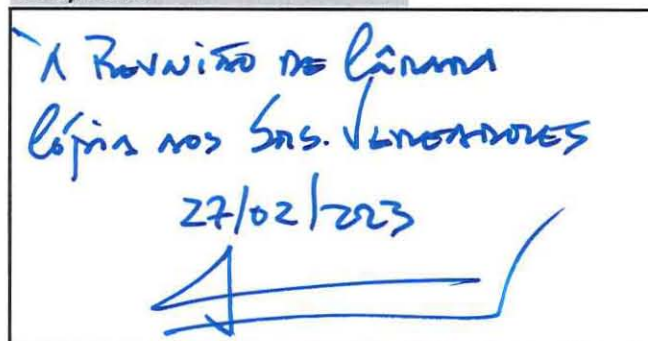 À Reunião de Câmara
Cópia aos Srs. Vereadores
27/02/2023